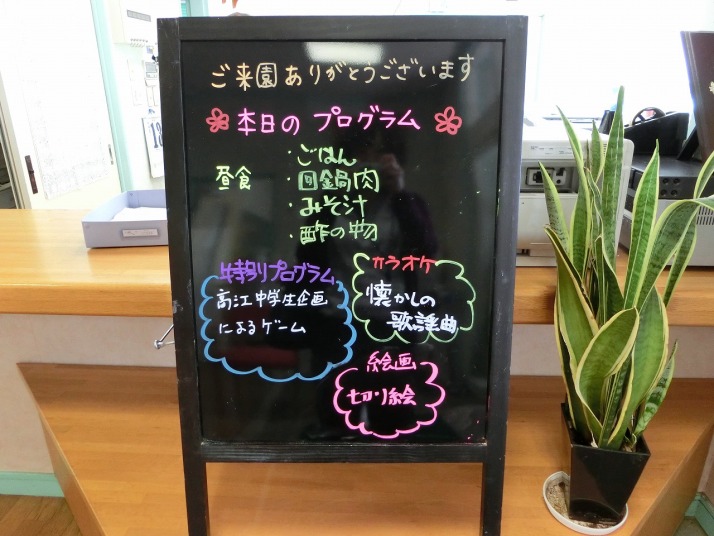 ご来園ありがとうございます
本日のプログラム
昼食
・ごはん
・回鍋肉
・みそ汁
・酢の物
特別プログラム
高江中学生企画
によるゲーム
カラオケ
懐かしの
歌謡曲
絵画
切り絵